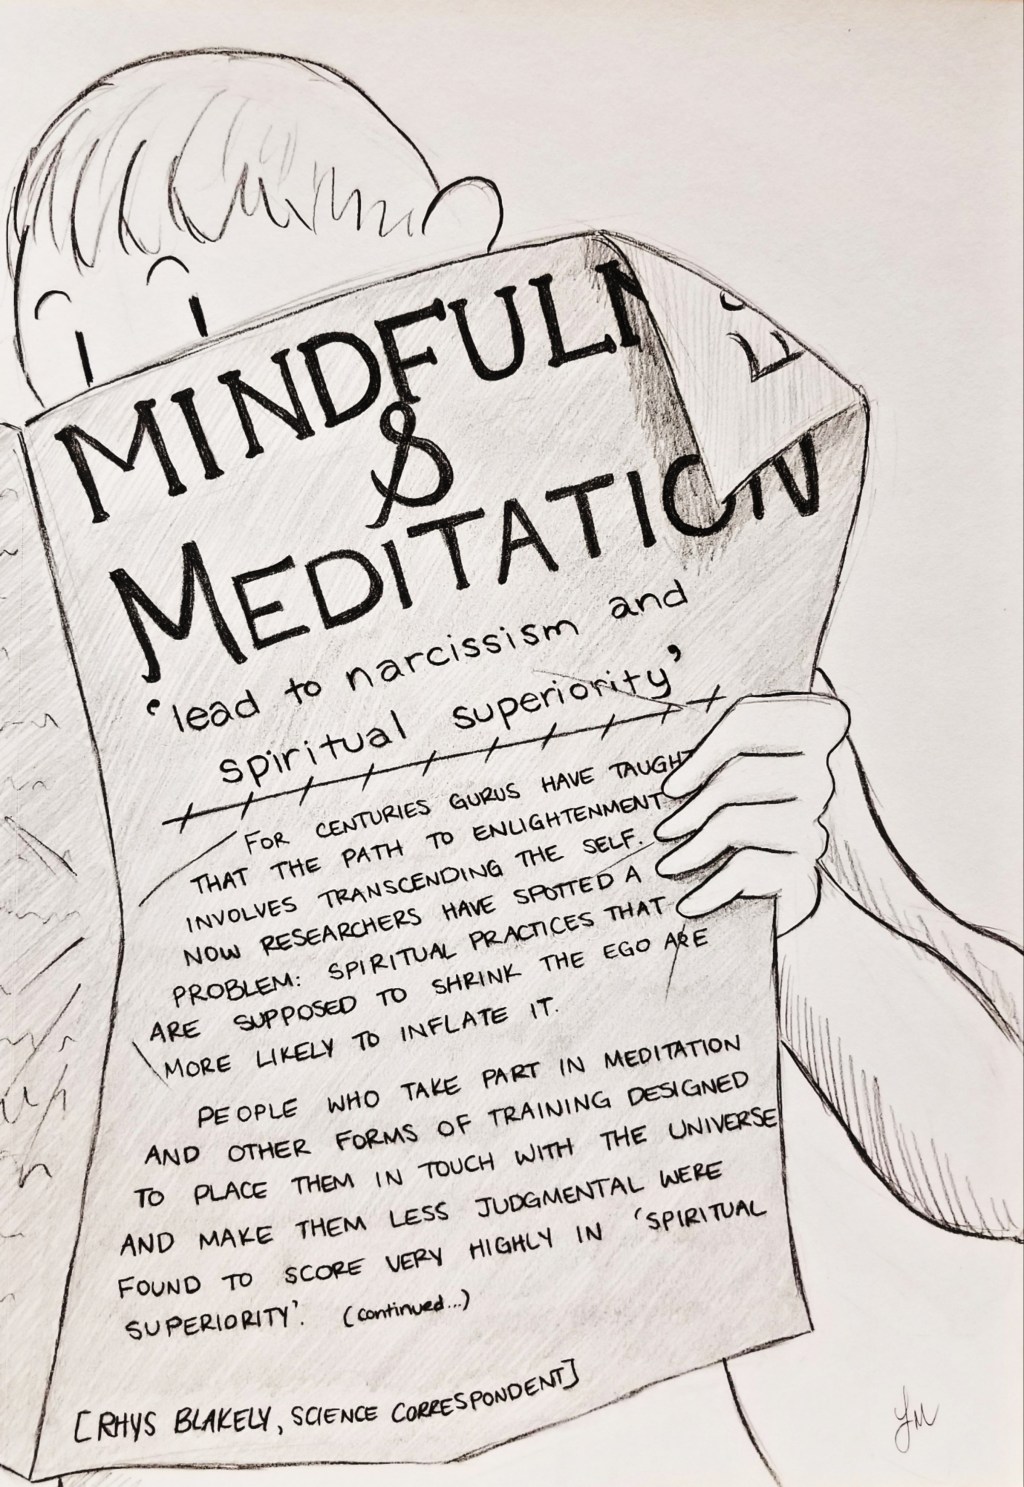 MINDFULN
ES
&
MEDITATION
'lead to narcissism and
spiritual superiority'
FOR CENTURIES GURUS HAVE TAUGHT
THAT THE PATH TO ENLIGHTENMENT
INVOLVES TRANSCENDING THE SELF.
NOW RESEARCHERS HAVE SPOTTED A
PROBLEM: SPIRITUAL PRACTICES THAT
ARE SUPPOSED TO SHRINK THE EGO ARE
MORE LIKELY TO INFLATE IT.
PEOPLE WHO TAKE PART IN MEDITATION
AND OTHER FORMS OF TRAINING DESIGNED
TO PLACE THEM IN TOUCH WITH THE UNIVERSE
AND MAKE THEM LESS JUDGMENTAL WERE
FOUND TO SCORE VERY HIGHLY IN 'SPIRITUAL
SUPERIORITY'. (continued...)
[RHYS BLAKELY, SCIENCE CORRESPONDENT]